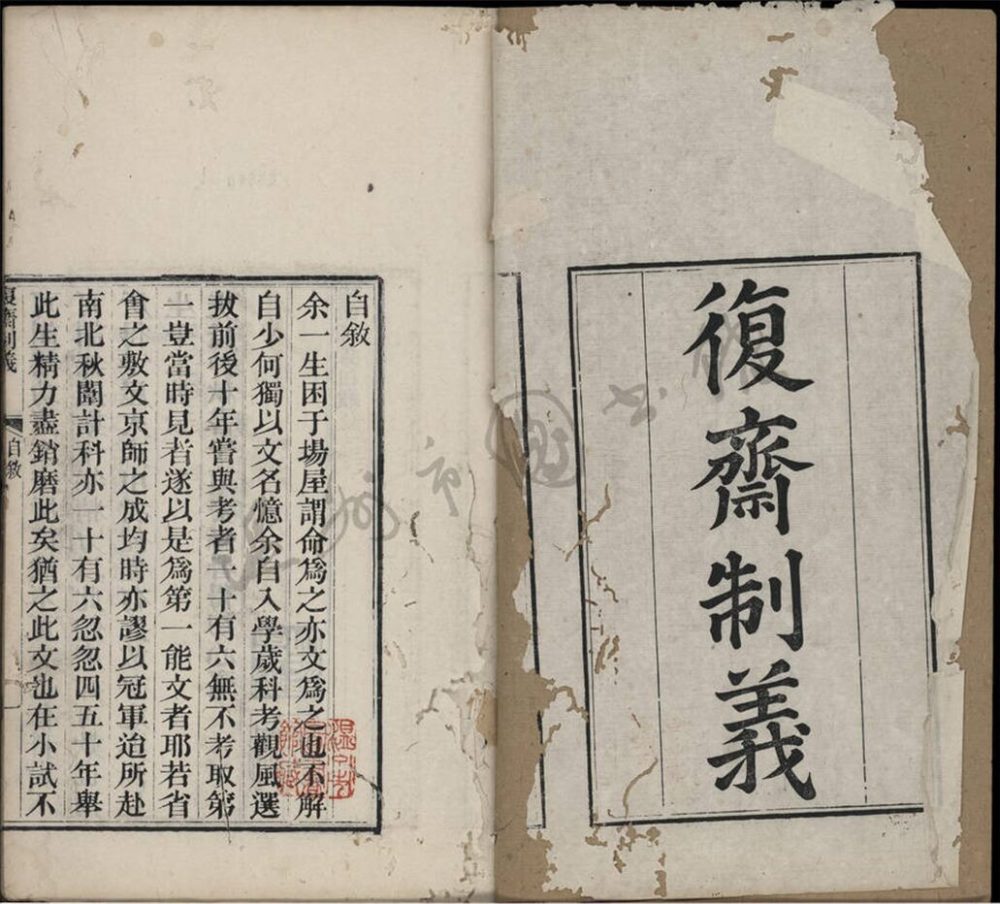 復齋制義
自敘
余一生困于場屋謂命爲之亦文爲之也不解
自少何獨以文名憶余自入學歲科考觀風選
拔前後十年嘗與考者一十有六無不考取第
一豈當時見者遂以是爲第一能文者耶若省
會之敷文京師之成均時亦謬以冠軍迨所赴
南北秋闈計科亦一十有六忽忽四五十年舉
此生精力盡銷磨此矣猶之此文也在小試不
復齋制義
自敘